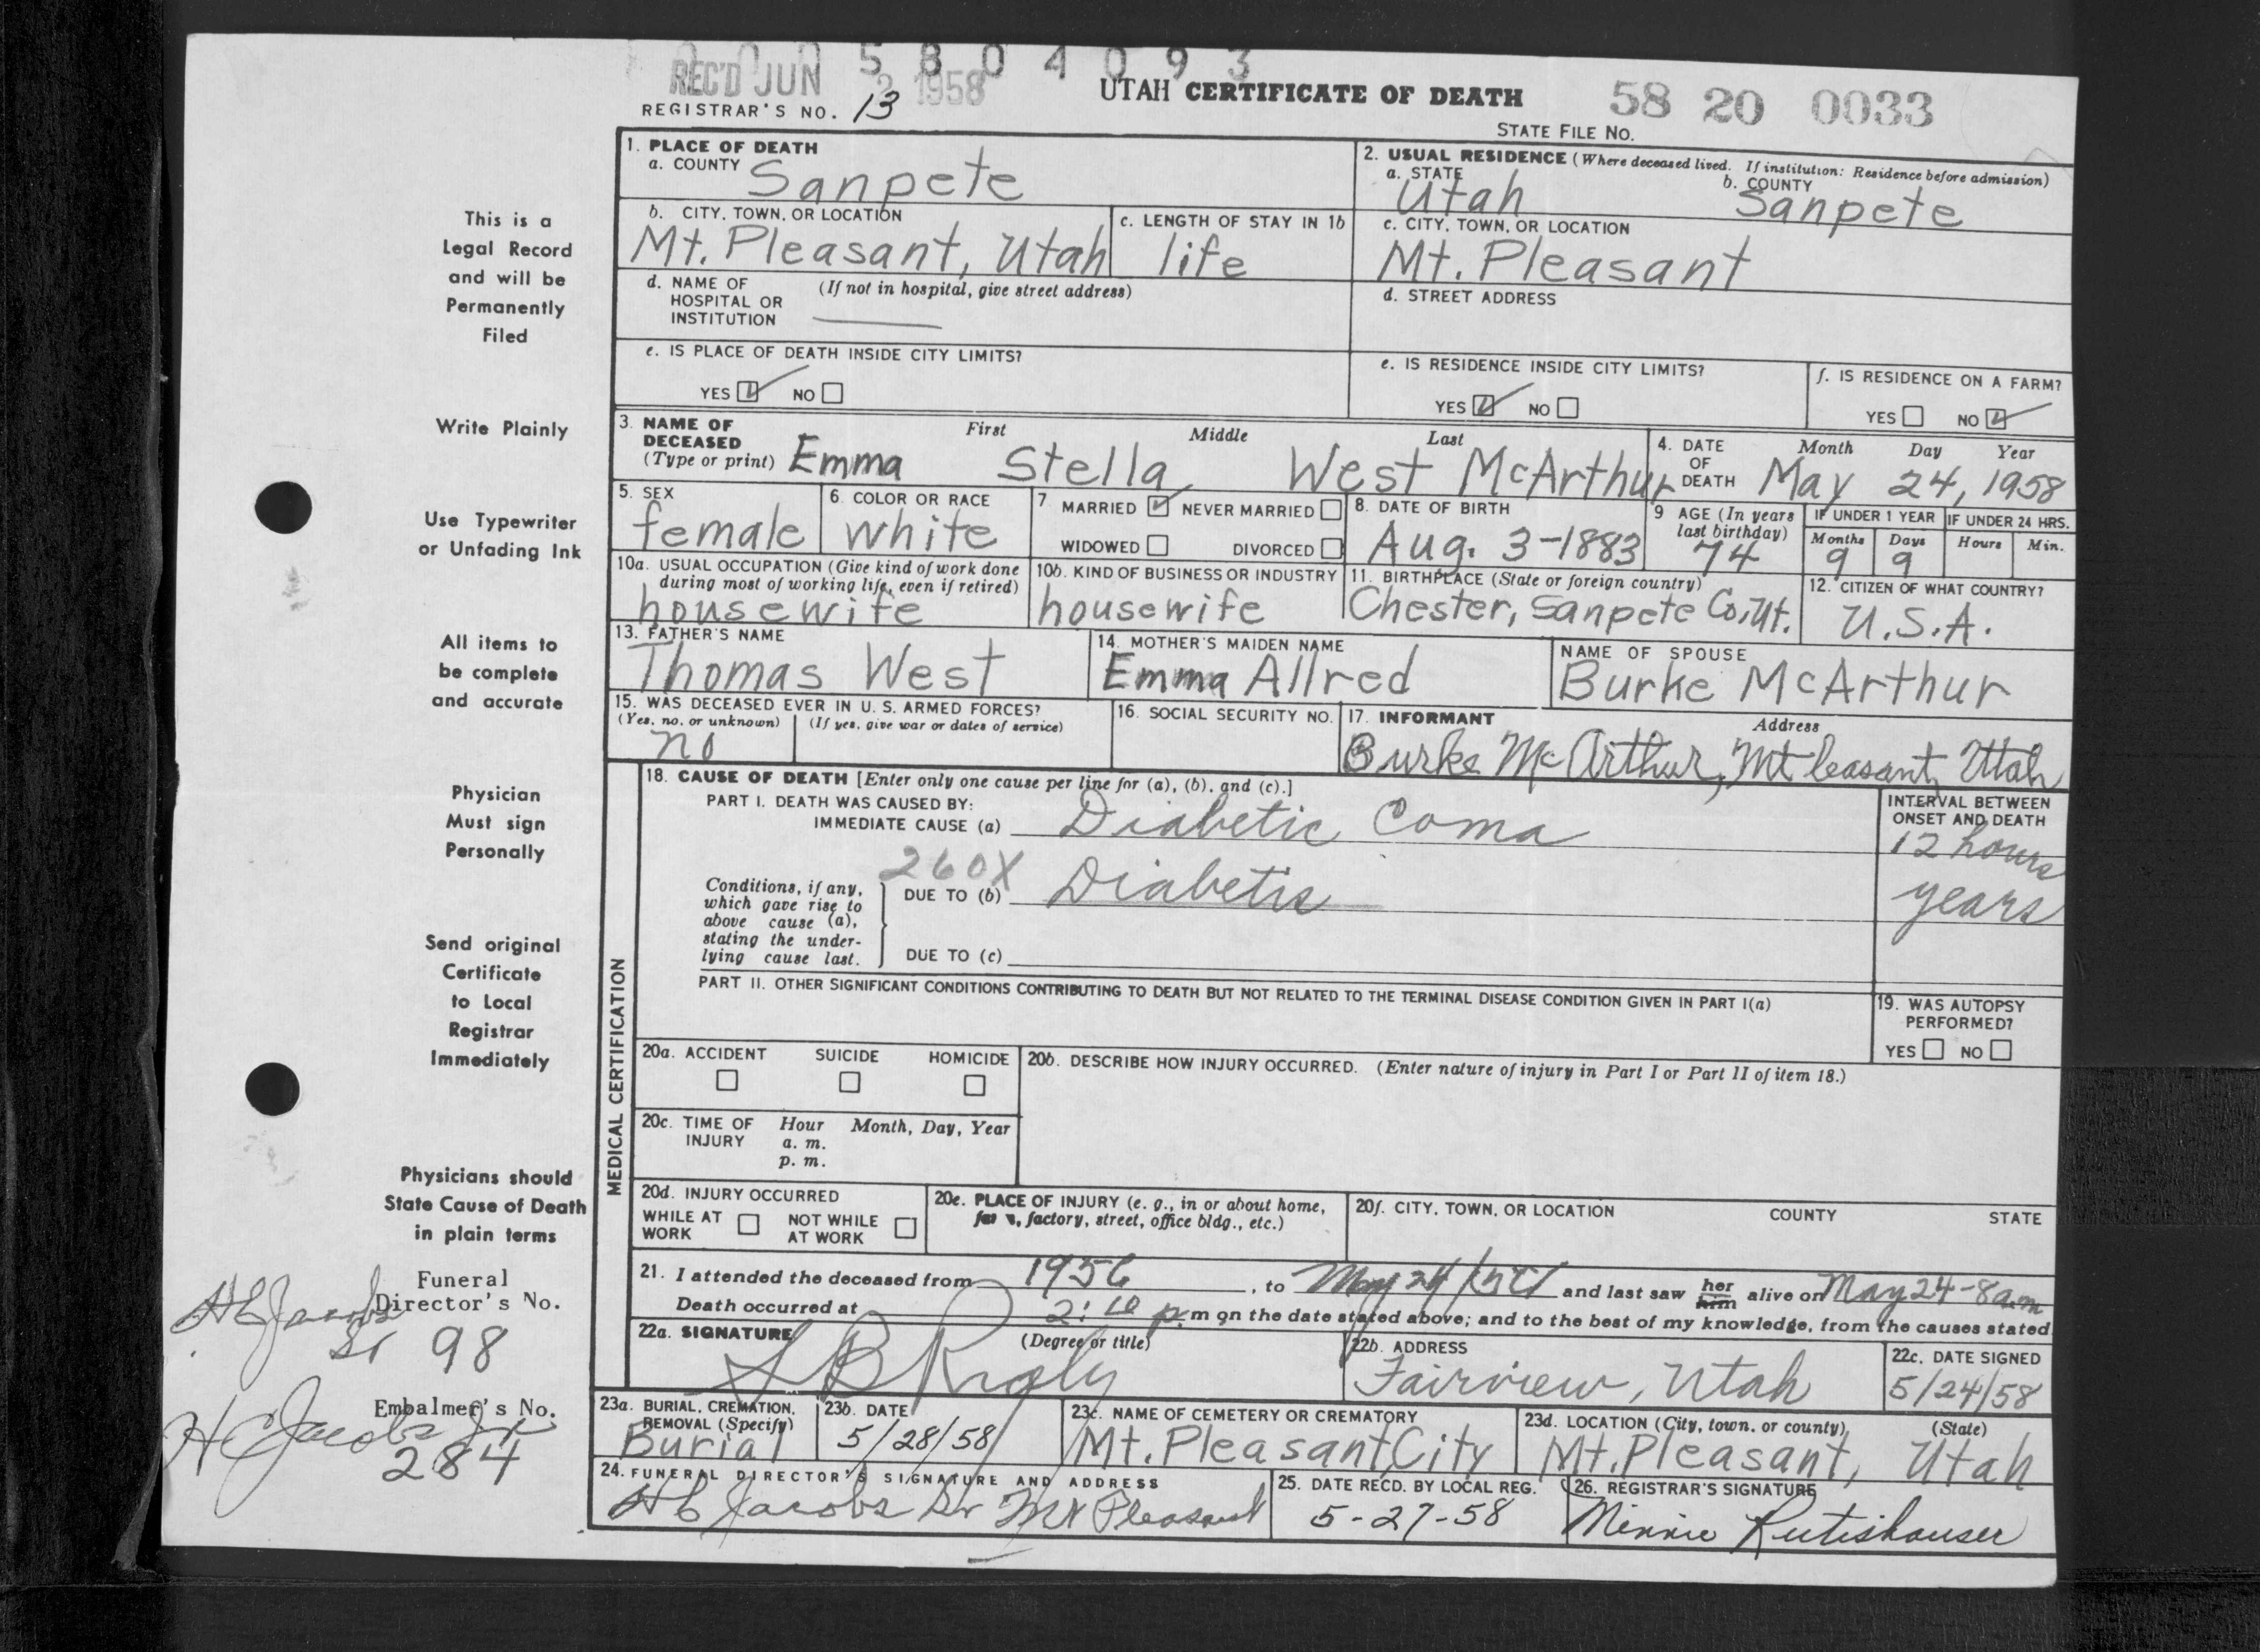 58 04093
REC'D JUN 2 1958
UTAH CERTIFICATE OF DEATH
58 20 0033
REGISTRAR'S NO. 13
STATE FILE NO.
This is a
Legal Record
and will be
Permanently
Filed
Write Plainly
Use Typewriter
or Unfading Ink
All items to
be complete
and accurate
Physician
Must sign
Personally
Send original
Certificate
to Local
Registrar
Immediately
Physicians should
State Cause of Death
in plain terms
Funeral
Director's No.
H C Jacobs
Sr 98
Embalmer's No.
H C Jacobs Jr
284
1. PLACE OF DEATH
a. COUNTY Sanpete
2. USUAL RESIDENCE (Where deceased lived. If institution: Residence before admission)
a. STATE Utah b. COUNTY Sanpete
b. CITY, TOWN, OR LOCATION
Mt. Pleasant, Utah
c. LENGTH OF STAY IN 1b
life
c. CITY, TOWN, OR LOCATION
Mt. Pleasant
d. NAME OF HOSPITAL OR INSTITUTION (If not in hospital, give street address)
d. STREET ADDRESS
e. IS PLACE OF DEATH INSIDE CITY LIMITS?
YES NO
e. IS RESIDENCE INSIDE CITY LIMITS?
YES NO
f. IS RESIDENCE ON A FARM?
YES NO
3. NAME OF DECEASED (Type or print) First Middle Last
Emma Stella West McArthur
4. DATE OF DEATH Month Day Year
May 24, 1958
5. SEX
female
6. COLOR OR RACE
white
7. MARRIED NEVER MARRIED
WIDOWED DIVORCED
8. DATE OF BIRTH
Aug. 3-1883
9 AGE (In years last birthday)
74
IF UNDER 1 YEAR
Months Days
9 9
IF UNDER 24 HRS.
Hours Min.
10a. USUAL OCCUPATION (Give kind of work done during most of working life, even if retired)
housewife
10b. KIND OF BUSINESS OR INDUSTRY
housewife
11. BIRTHPLACE (State or foreign country)
Chester, Sanpete Co, Ut.
12. CITIZEN OF WHAT COUNTRY?
U.S.A.
13. FATHER'S NAME
Thomas West
14. MOTHER'S MAIDEN NAME
Emma Allred
NAME OF SPOUSE
Burke McArthur
15. WAS DECEASED EVER IN U. S. ARMED FORCES?
(Yes, no, or unknown) (If yes, give war or dates of service)
no
16. SOCIAL SECURITY NO.
17. INFORMANT Address
Burke McArthur, Mt Pleasant, Utah
MEDICAL CERTIFICATION
18. CAUSE OF DEATH [Enter only one cause per line for (a), (b), and (c).]
PART I. DEATH WAS CAUSED BY:
IMMEDIATE CAUSE (a) Diabetic Coma
INTERVAL BETWEEN ONSET AND DEATH
12 hours
260X
Conditions, if any, which gave rise to above cause (a), stating the underlying cause last.
DUE TO (b) Diabetis
years
DUE TO (c)
PART II. OTHER SIGNIFICANT CONDITIONS CONTRIBUTING TO DEATH BUT NOT RELATED TO THE TERMINAL DISEASE CONDITION GIVEN IN PART I(a)
19. WAS AUTOPSY PERFORMED?
YES NO
20a. ACCIDENT SUICIDE HOMICIDE
20b. DESCRIBE HOW INJURY OCCURRED. (Enter nature of injury in Part I or Part II of item 18.)
20c. TIME OF INJURY Hour Month, Day, Year
a. m.
p. m.
20d. INJURY OCCURRED
WHILE AT WORK NOT WHILE AT WORK
20e. PLACE OF INJURY (e. g., in or about home, farm, factory, street, office bldg., etc.)
20f. CITY, TOWN, OR LOCATION COUNTY STATE
21. I attended the deceased from 1956, to May 24/58 and last saw her him alive on May 24-8am
Death occurred at 2:10 p.m on the date stated above; and to the best of my knowledge, from the causes stated
22a. SIGNATURE (Degree or title)
22b. ADDRESS
Fairview, Utah
22c. DATE SIGNED
5/24/58
23a. BURIAL, CREMATION, REMOVAL (Specify)
Burial
23b. DATE
5/28/58
23c. NAME OF CEMETERY OR CREMATORY
Mt. Pleasant City
23d. LOCATION (City, town, or county) (State)
Mt. Pleasant, Utah
24. FUNERAL DIRECTOR'S SIGNATURE AND ADDRESS
H C Jacobs Sr Mt Pleasant
25. DATE RECD. BY LOCAL REG.
5-27-58
26. REGISTRAR'S SIGNATURE
Minnie Rutishauser